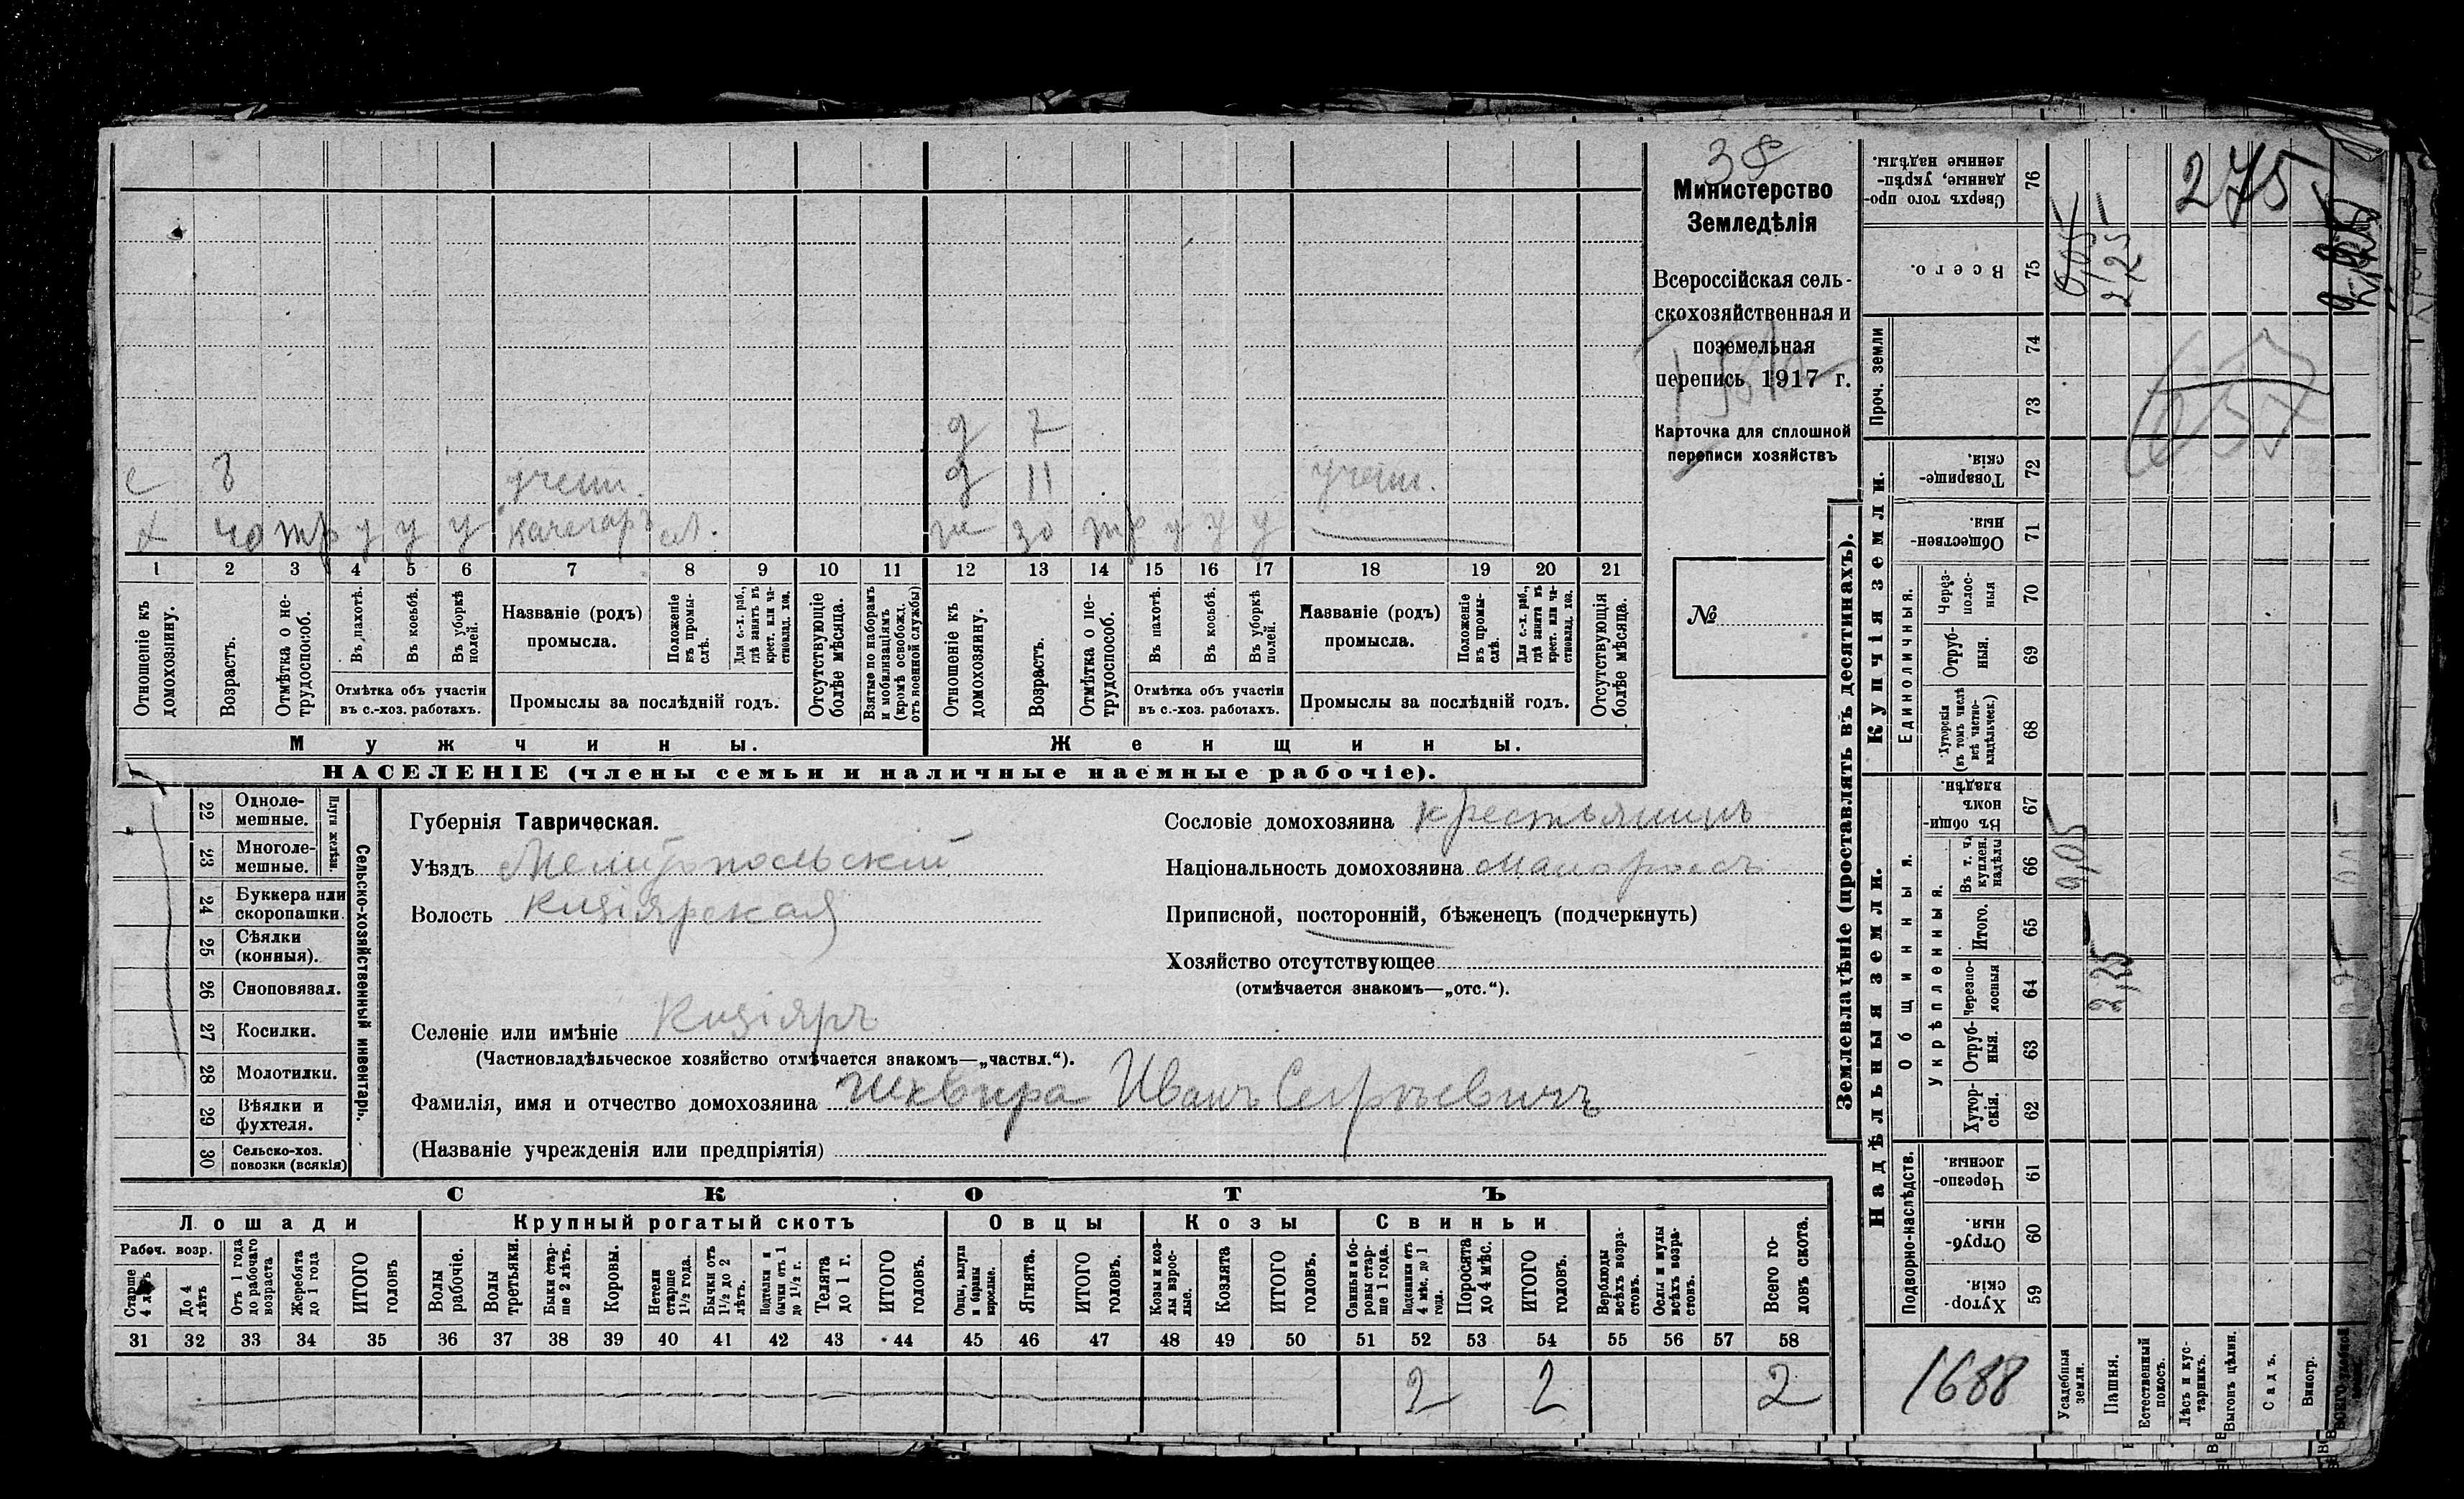 38
Министерство
Земледѣлія
Всероссійская сель-
скохозяйственная и
поземельная
перепись 1917 г.
Карточка для сплошной
переписи хозяйствъ
№
д 7
с 8 учен. д 11 учен.
х 40 тр у у у качегаръ ж 30 тр у у у
1 2 3 4 5 6 7 8 9 10 11 12 13 14 15 16 17 18 19 20 21
Отношеніе къ домохозяину.
Возрастъ.
Отмѣтка о не-трудоспособ.
Въ пахотѣ.
Въ косьбѣ.
Въ уборкѣ полей.
Отмѣтка объ участіи
въ с.-хоз. работахъ.
Названіе (родъ)
промысла.
Положеніе въ промы-слѣ.
Для с.-х. раб., гдѣ занятъ въ крест. или ча-стновлад. хоз.
Промыслы за послѣдній годъ.
Отсутствующіе болѣе мѣсяца.
Взятые по наборамъ и мобилизаціямъ (кромѣ освобожд. отъ военной службы)
Отношеніе къ домохозяину.
Возрастъ.
Отмѣтка о не-трудоспособ.
Въ пахотѣ.
Въ косьбѣ.
Въ уборкѣ полей.
Отмѣтка объ участіи
въ с.-хоз. работахъ.
Названіе (родъ)
промысла.
Положеніе въ промы-слѣ.
Для с.-х. раб., гдѣ занятъ въ крест. или ча-стновлад. хоз.
Промыслы за послѣдній годъ.
Отсутствующія болѣе мѣсяца.
Мужчины.
Женщины.
НАСЕЛЕНІЕ (члены семьи и наличные наемные рабочіе).
Сельско-хозяйственный инвентарь.
Плуги желѣзн.
22 Одноле-мешные.
23 Многоле-мешные.
24 Буккера или скоропашки.
25 Сѣялки (конныя).
26 Сноповязал.
27 Косилки.
28 Молотилки.
29 Вѣялки и фухтеля.
30 Сельско-хоз. повозки (всякія)
Губернія Таврическая.
Уѣздъ Мелитопольскій
Волость Кизіярская
Сословіе домохозяина крестьянинъ
Національность домохозяина малороссъ
Приписной, посторонній, бѣженецъ (подчеркнуть)
Хозяйство отсутствующее
(отмѣчается знакомъ—„отс.“).
Селеніе или имѣніе Кизіяръ
(Частновладѣльческое хозяйство отмѣчается знакомъ—„частвл.“).
Фамилія, имя и отчество домохозяина Шквира Иванъ Сергѣевичъ
(Названіе учрежденія или предпріятія)
СКОТЪ
Лошади
Крупный рогатый скотъ
Овцы
Козы
Свиньи
Рабоч. возр.
Старше 4 лѣтъ
До 4 лѣтъ
Отъ 1 года до рабочаго возраста
Жеребята до 1 года
ИТОГО головъ
Волы рабочіе.
Волы третьяки.
Быки стар-ше 2 лѣтъ.
Коровы.
Нетели старше 1½ года.
Бычки отъ 1½ до 2 лѣтъ.
Подтелки и бычки отъ 1 до 1½ г.
Телята до 1 г.
ИТОГО головъ.
Овцы, валухи и бараны взрослые.
Ягнята.
ИТОГО головъ.
Козы и коз-лы взрос-лые.
Козлята
ИТОГО головъ.
Свиньи и бо-ровы стар-ше 1 года.
Подсвинки отъ 4 мѣс. до 1 года.
Поросята до 4 мѣс.
ИТОГО головъ.
Верблюды всѣхъ возра-стовъ.
Ослы и мулы всѣхъ возра-стовъ.
Всего го-ловъ скота.
31 32 33 34 35 36 37 38 39 40 41 42 43 44 45 46 47 48 49 50 51 52 53 54 55 56 57 58
2 2 2
Землевладѣніе (проставлять въ десятинахъ).
Надѣльныя земли.
Купчія земли.
Проч. земли
Подворно-наслѣдств.
Общинныя.
Укрѣпленныя.
Единоличныя.
Хутор-скія. 59
Отруб-ныя. 60
Черезпо-лосныя 61
Хутор-скія. 62
Отруб-ныя. 63
Черезпо-лосныя 64
Итого. 65
Въ т. ч. куплен. надѣлы 66
Въ общин-номъ владѣн. 67
Хуторскія (въ томъ числѣ всѣ частно-владѣльческ.) 68
Отруб-ныя. 69
Через-полос-ныя 70
Обществен-ныя. 71
Товарище-скія. 72
73
74
Всего. 75
Сверхъ того про-данные, укрѣп-ленные надѣлы. 76
Усадебныя земли.
Пашня.
Естественный покосъ.
Лѣсъ и кус-тарникъ.
Выгонъ цѣлин.
Садъ.
Виногр.
0,05
2,25
0,05
2,25
275
657
1688